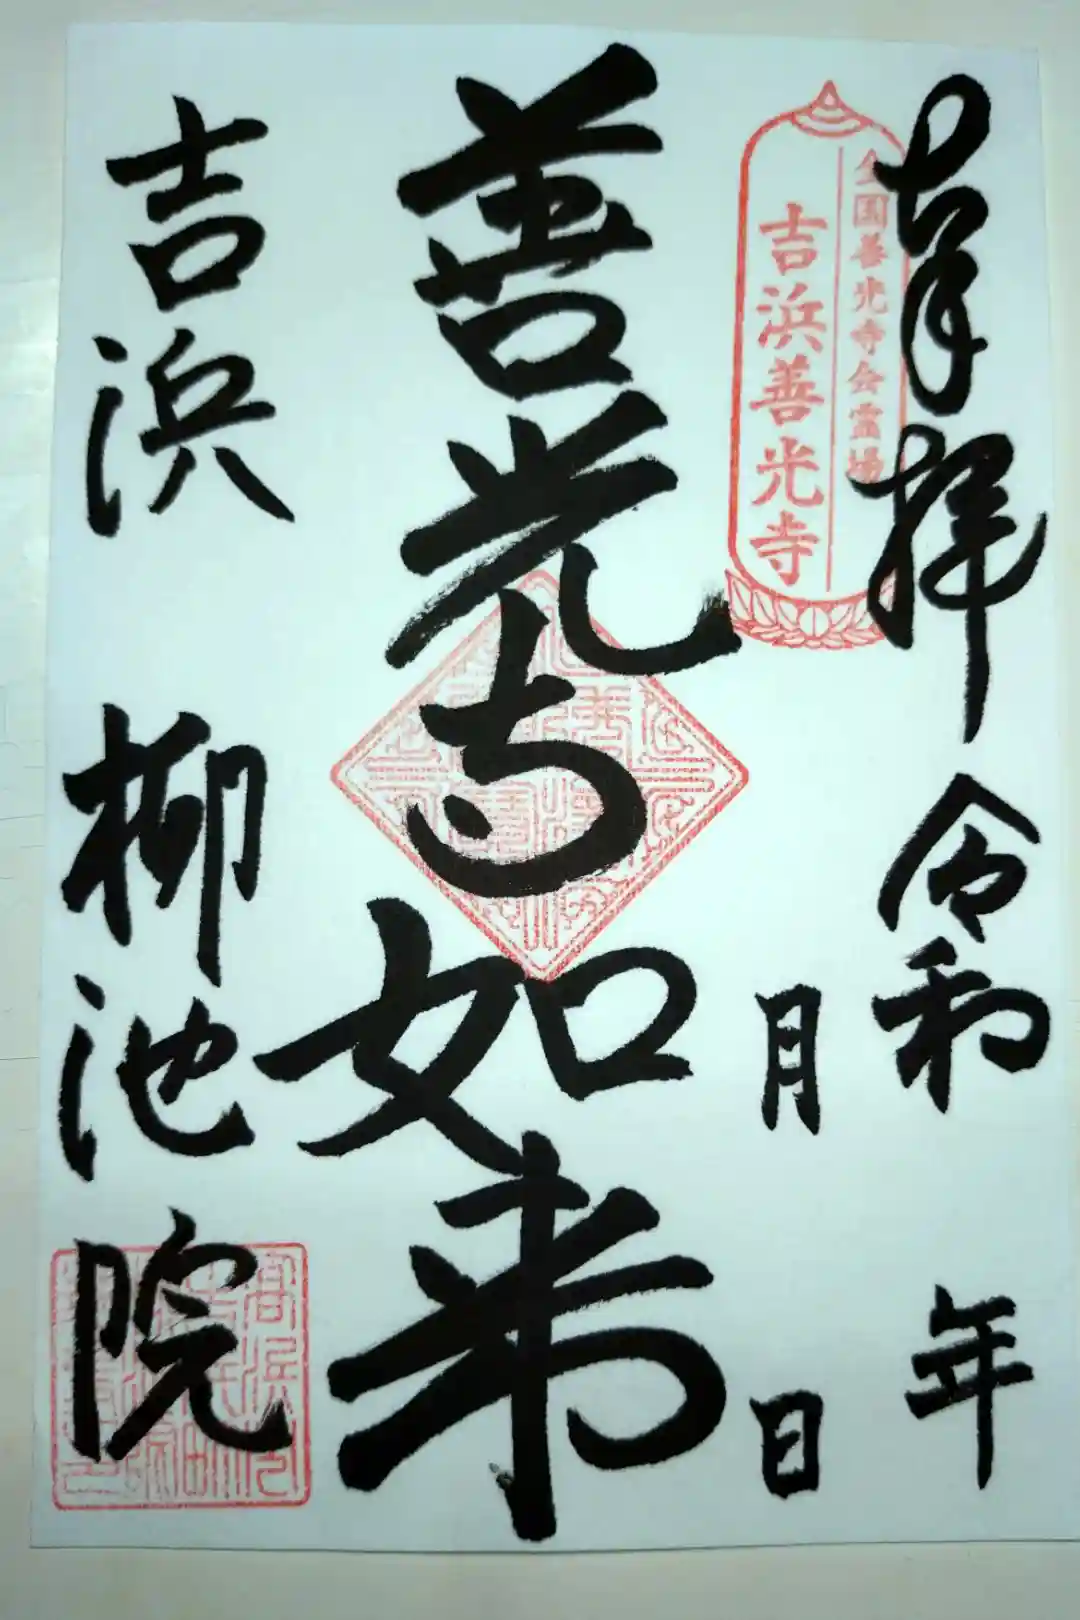 奉拝 令和 年
月 日
全国善光寺会霊場
吉浜善光寺
善光寺如来
吉浜 柳池院